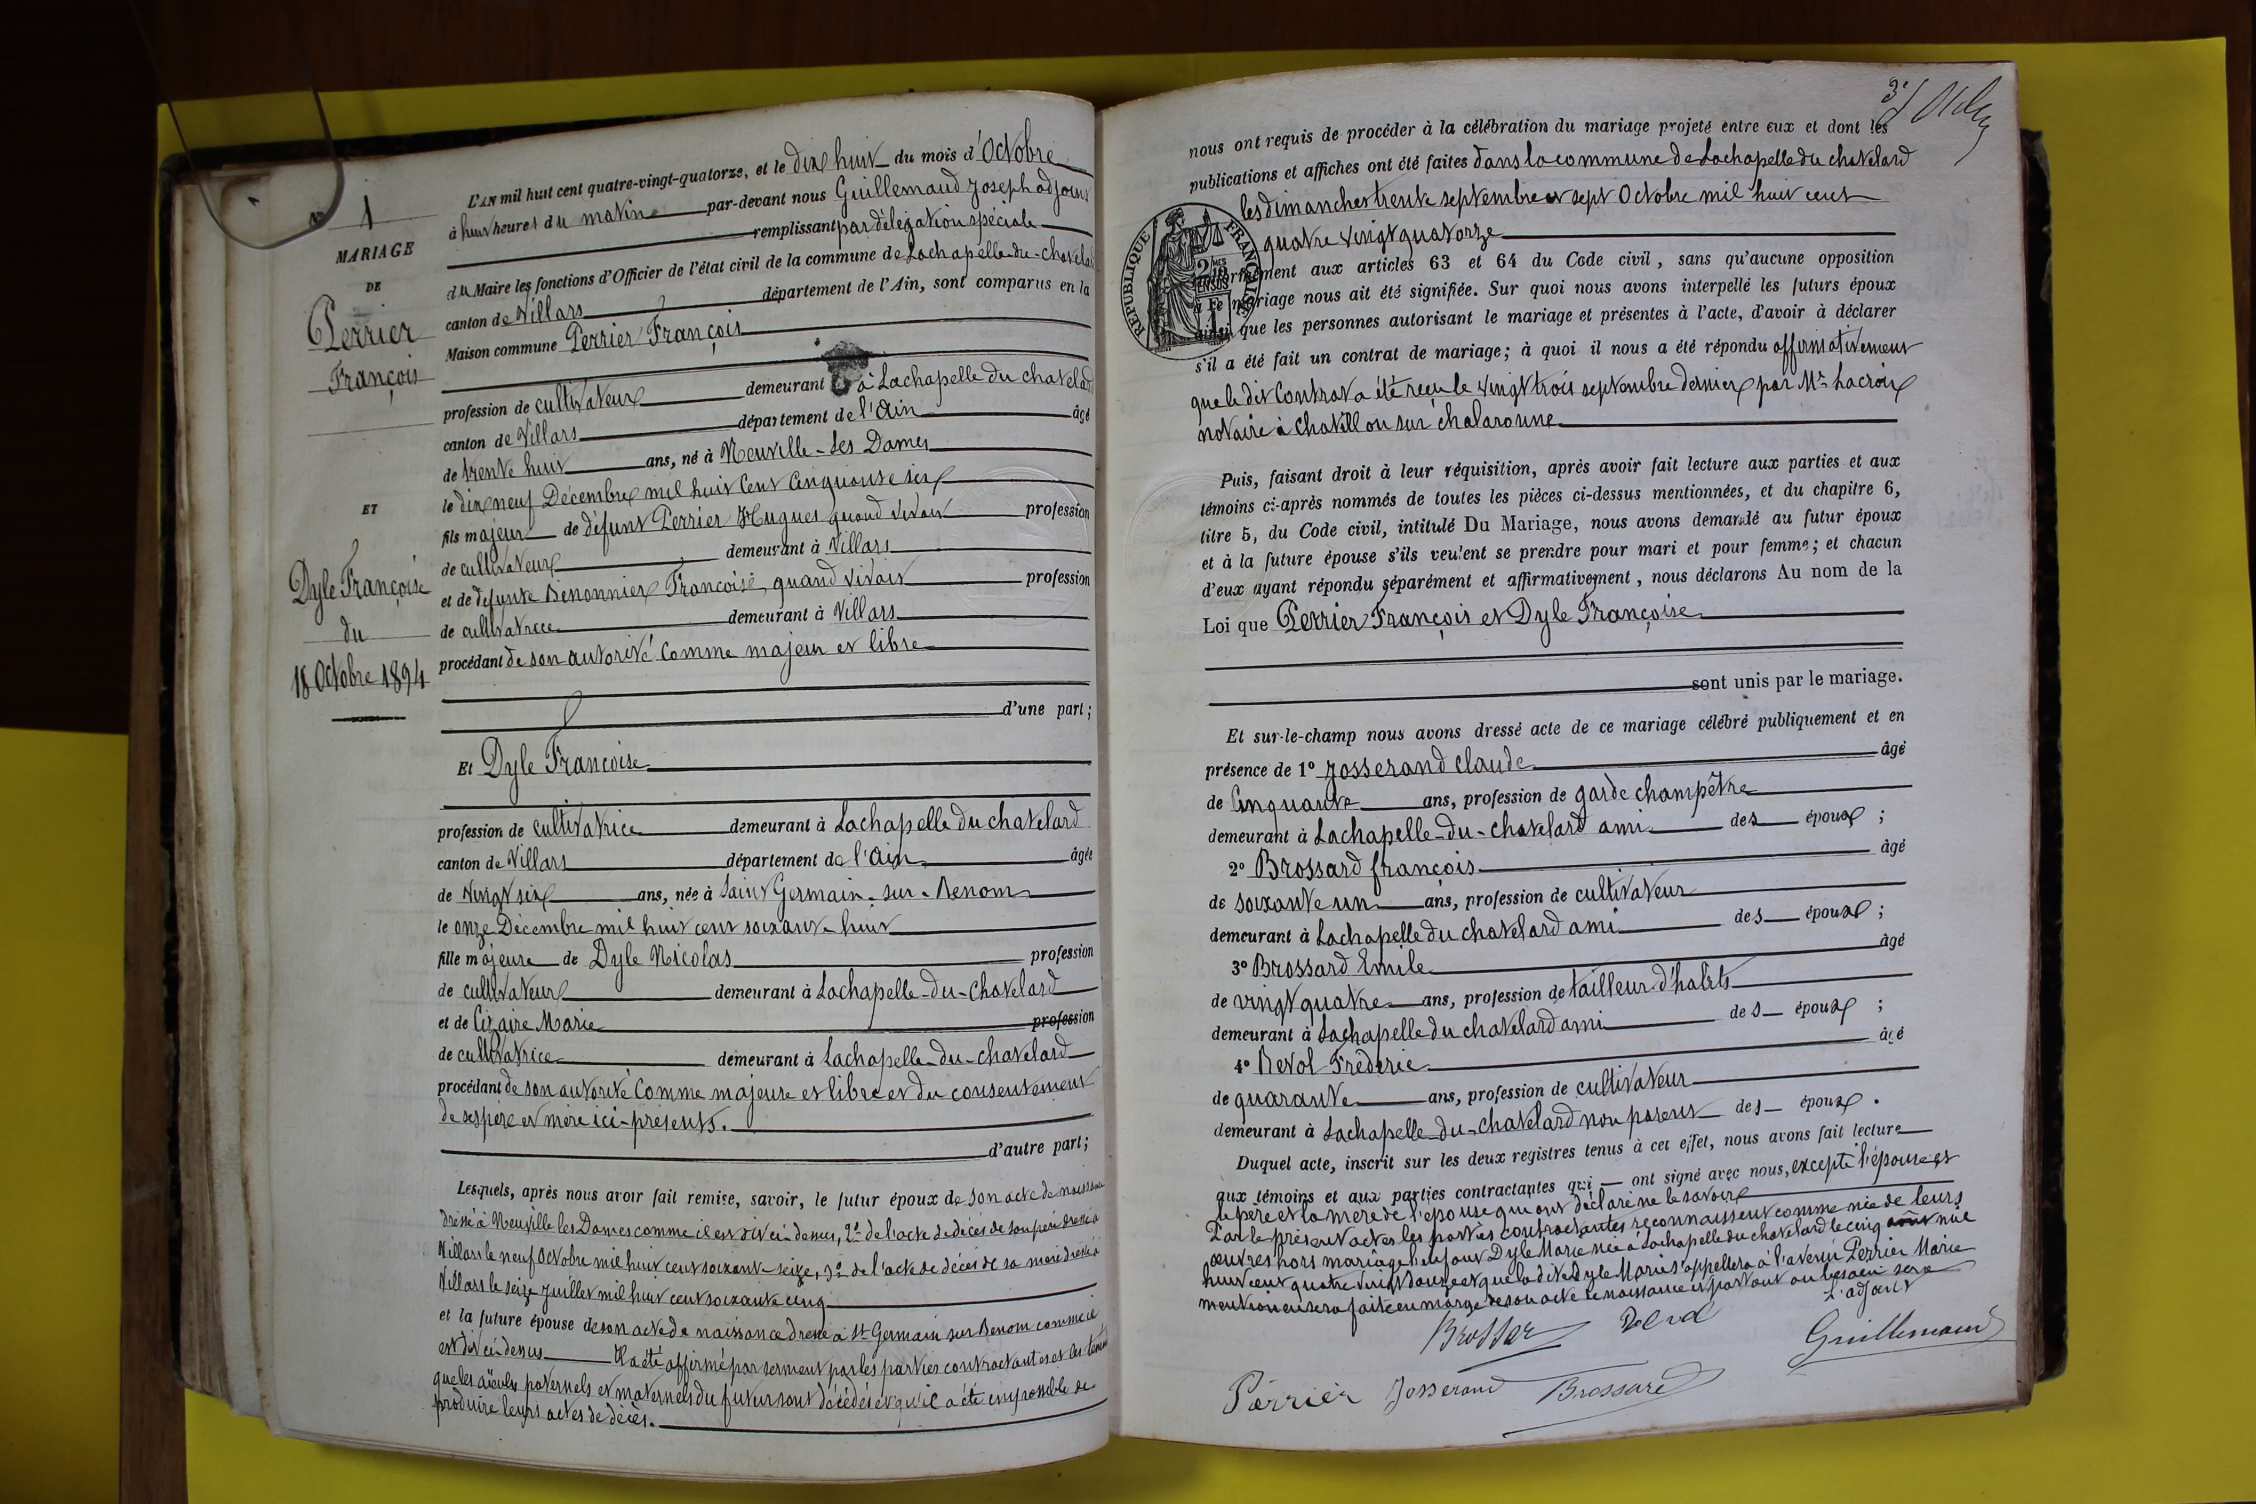 N° 1
MARIAGE
DE
Perrier
François
ET
Dyle Françoise
du
18 Octobre 1894
L'AN mil huit cent quatre-vingt-quatorze, et le dix huit du mois d'Octobre
à huit heures du matin par-devant nous Guillemaud Joseph adjoint
remplissant par délégation spéciale
du Maire les fonctions d'Officier de l'état civil de la commune de Lachapelle-du-Chatelard
canton de Villars département de l'Ain, sont comparus en la
Maison commune Perrier François
profession de cultivateur demeurant à Lachapelle du chatelard
canton de Villars département de l'Ain âgé
de trente huit ans, né à Neuville-Les Dames
le dix neuf Décembre mil huit cent cinquante six
fils majeur de défunt Perrier Hugues quand vivait profession
de cultivateur demeurant à Villars
et de défunte Benonnier Françoise quand vivait profession
de cultivatrice demeurant à Villars
procédant de son autorité comme majeur et libre
d'une part;
Et Dyle Françoise
profession de cultivatrice demeurant à Lachapelle du chatelard
canton de Villars département de l'Ain âgée
de vingt six ans, née à Saint Germain-sur-Renom
le onze Décembre mil huit cent soixante huit
fille majeure de Dyle Nicolas profession
de cultivateur demeurant à Lachapelle-du-chatelard
et de Cizaire Marie profession
de cultivatrice demeurant à Lachapelle-du-chatelard
procédant de son autorité comme majeure et libre et du consentement
de ses père et mère ici-présents.
d'autre part;
Lesquels, après nous avoir fait remise, savoir, le futur époux de son acte de naissance
dressé à Neuville les Dames comme il est dit ci-dessus, 2° de l'acte de décès de son père dressé à
Villars le neuf Octobre mil huit cent soixante-seize, 3° de l'acte de décès de sa mère dressé à
Villars le seize Juillet mil huit cent soixante cinq
et la future épouse de son acte de naissance dressé à St Germain sur Renom comme il
est dit ci-dessus Il a été affirmé par serment par les parties contractantes et les témoins
que les aïeuls paternels et maternels du futur sont décédés et qu'il a été impossible de
produire leurs actes de décès.
nous ont requis de procéder à la célébration du mariage projeté entre eux et dont les
publications et affiches ont été faites dans la commune de Lachapelle du chatelard
les dimanches trente septembre et sept Octobre mil huit cent
quatre vingt quatorze
REPUBLIQUE FRANÇAISE
conformément aux articles 63 et 64 du Code civil, sans qu'aucune opposition
à ce mariage nous ait été signifiée. Sur quoi nous avons interpellé les futurs époux
ainsi que les personnes autorisant le mariage et présentes à l'acte, d'avoir à déclarer
s'il a été fait un contrat de mariage; à quoi il nous a été répondu affirmativement
que le dit Contrat a été reçu le vingt trois septembre dernier par Me Lacroix
notaire à Chatillon sur chalaronne
Puis, faisant droit à leur réquisition, après avoir fait lecture aux parties et aux
témoins ci-après nommés de toutes les pièces ci-dessus mentionnées, et du chapitre 6,
titre 5, du Code civil, intitulé Du Mariage, nous avons demandé au futur époux
et à la future épouse s'ils veulent se prendre pour mari et pour femme; et chacun
d'eux ayant répondu séparément et affirmativement, nous déclarons Au nom de la
Loi que Perrier François et Dyle Françoise
sont unis par le mariage.
Et sur-le-champ nous avons dressé acte de ce mariage célébré publiquement et en
présence de 1° Josserand Claude âgé
de Cinquante ans, profession de garde champêtre
demeurant à Lachapelle-du-chatelard ami des époux ;
2° Brossard françois âgé
de soixante un ans, profession de cultivateur
demeurant à Lachapelle du chatelard ami des époux ;
3° Brossard Emile âgé
de vingt quatre ans, profession de tailleur d'habits
demeurant à Lachapelle du chatelard ami des époux ;
4° Revol Fréderic âgé
de quarante ans, profession de cultivateur
demeurant à Lachapelle-du-chatelard non parent des époux .
Duquel acte, inscrit sur les deux registres tenus à cet effet, nous avons fait lecture
aux témoins et aux parties contractantes qui ont signé avec nous, excepté l'épouse et
le père et la mère de l'épouse qui ont déclaré ne le savoir
Par le présent acte les parties contractantes reconnaissent comme née de leurs
œuvres hors mariage Dyle Marie née à Lachapelle du chatelard le cinq août mil
huit cent quatre vingt douze et que la dite Dyle Marie s'appellera à l'avenir Perrier Marie
mention en sera faite en marge de son acte de naissance et partout où besoin sera
L'adjoint
Revol
Guillemaud
Perrier Josserand Brossard